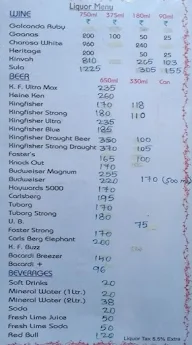 Liquor Menu
WINE 750ml 375ml 180ml 90ml
Golconda Ruby
Goanas 200 50 25
Charosa White 960 240
Heritage 200 50 25
Kinvah 810 205 103
Sula 1225 305 155
BEER 650ml 330ml Can.
K. F. Ultra Max 235
Heine Ken 260
Kingfisher 170 118
Kingfisher Strong 180 110
Kingfisher Ultra 235
Kingfisher Blue 185
Kingfisher Draught Beer 350 100
Kingfisher Strong Draught 370 105
Foster's 165 100
Knock Out 170
Budweisar Magnum 255
Budweiser 220 170 (500 ml)
Haywards 5000 170
Carlsberg 195
Tuborg 170
Tuborg Strong 180
U. B. 75
Foster Strong 170
Carls Berg Elephant 200
K. F. Buzz
Bacardi Breezer 140
Bacardi + 96
BEVERAGES
Soft Drinks 20
Mineral Water (1Ltr.) 20
Mineral Water (2Ltr.) 38
Soda 20
Fresh Lime Juice 50
Fresh Lime Soda 50
Red Bull 120
Liquor Tax 5.5% Extra